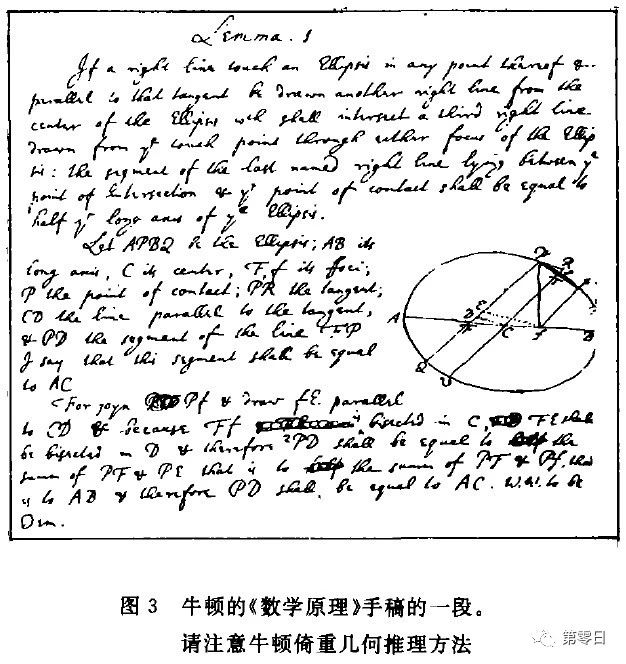 Lemma. 1
If a right line touch an Ellipsis in any point thereof &
parallel to that tangent be drawn another right line from the
center of the Ellipsis wch shall intersect a third right line
drawn from ye touch point through either focus of the Ellip
sis: the segment of the last named right line lying between ye
point of intersection & ye point of contact shall be equal to
half ye long axis of ye Ellipsis.
Let APBQ be the Ellipsis; AB its
long axis, C its center, F, f its foci;
P the point of contact; PR the tangent;
CD the line parallel to the tangent,
& PD the segment of the line FP
I say that this segment shall be equal
to AC
For joyn Pf & draw fE parallel
to CD & because Ff bisected in C, FE shall
be bisected in D & therefore 2PD shall be equal to the
summ of PF & PE that is to the summ of PF & Pf, that
is to AB & therefore PD shall be equal to AC. W.W. to be
Dem.
A
D
E
C
R
B
Q
图 3 牛顿的《数学原理》手稿的一段。
请注意牛顿倚重几何推理方法
第零日